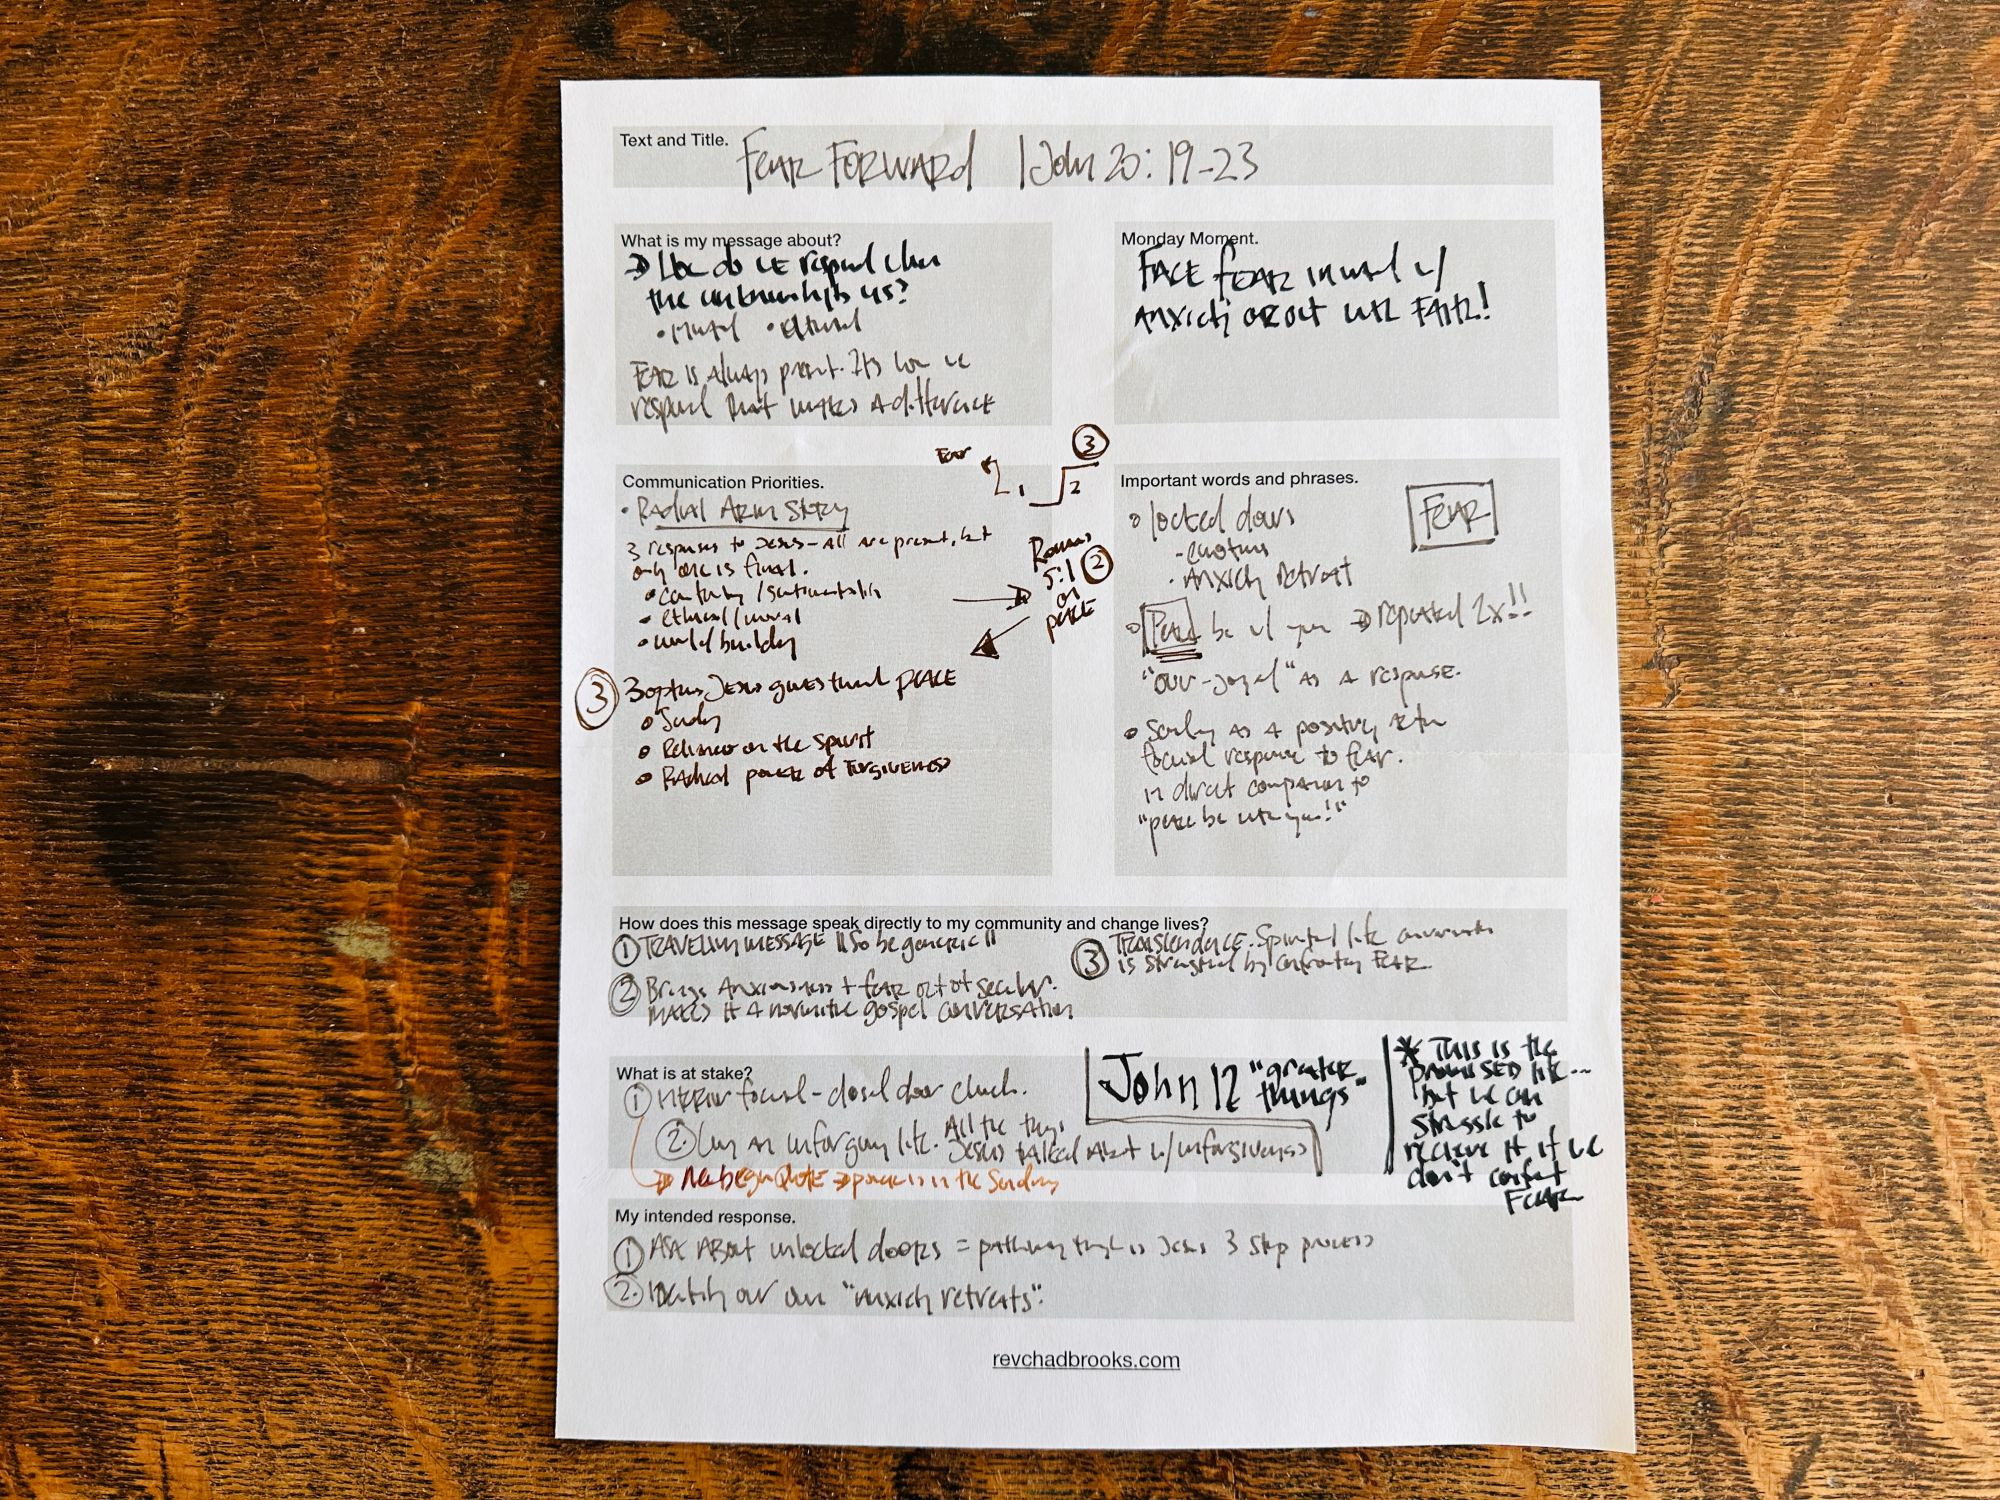 Text and Title.
FEAR FORWARD | John 20:19-23
What is my message about?
→ How do we respond when
the unknown hits us?
Fear is always present. Its how we
respond that makes a difference
Monday Moment.
FACE FEAR inward w/
Anxiety or out with FAITH!
Fear 1 2 ③
Communication Priorities.
• Radial Arm Story
3 responses to Jesus - All are present, but
only one is final.
• /sentimentality
• ethical/moral
• world building
Romans
5:1 ②
on
peace
③ 3 options Jesus gives them peace
• Sending
• Reliance on the Spirit
• Radical power of Forgiveness
Important words and phrases.
• locked doors
- emotions
• Anxiety Retreat
FEAR
• Peace be w/ you → repeated 2x!!
"our-joyed" as a response.
• Sending as a positive
focused response to fear.
in direct comparison to
"peace be with you!"
How does this message speak directly to my community and change lives?
① TRAVELING MESSAGE || So be generic ||
② Brings Anxiousness + fear out of secular.
makes it a normative gospel conversation
③ Transcendence. Spiritual life
is strengthened by confronting Fear.
What is at stake?
① interior focused - closed door church.
② Living an unforgiving life. All the things
Jesus talked about w/ unforgiveness
→ Quote → power is in the Sending
John 12 "greater
things"
* This is the
promised life...
but we can
struggle to
recieve it if we
don't confront
Fear
My intended response.
① Ask About unlocked doors = pathway through is Jesus 3 step process
②. Identify our own "anxiety retreats".
revchadbrooks.com